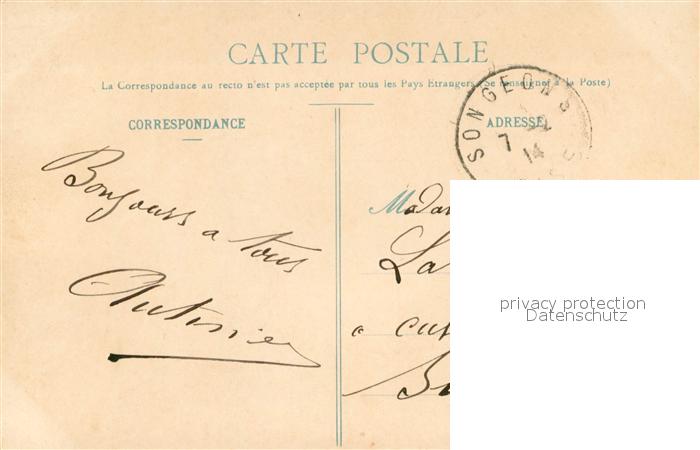 CARTE POSTALE
La Correspondance au recto n'est pas acceptée par tous les Pays Etrangers (Se renseigner à la Poste)
CORRESPONDANCE
ADRESSE
SONGEONS
7
14
Bonjours a tous
Madam
La
a
privacy protection
Datenschutz